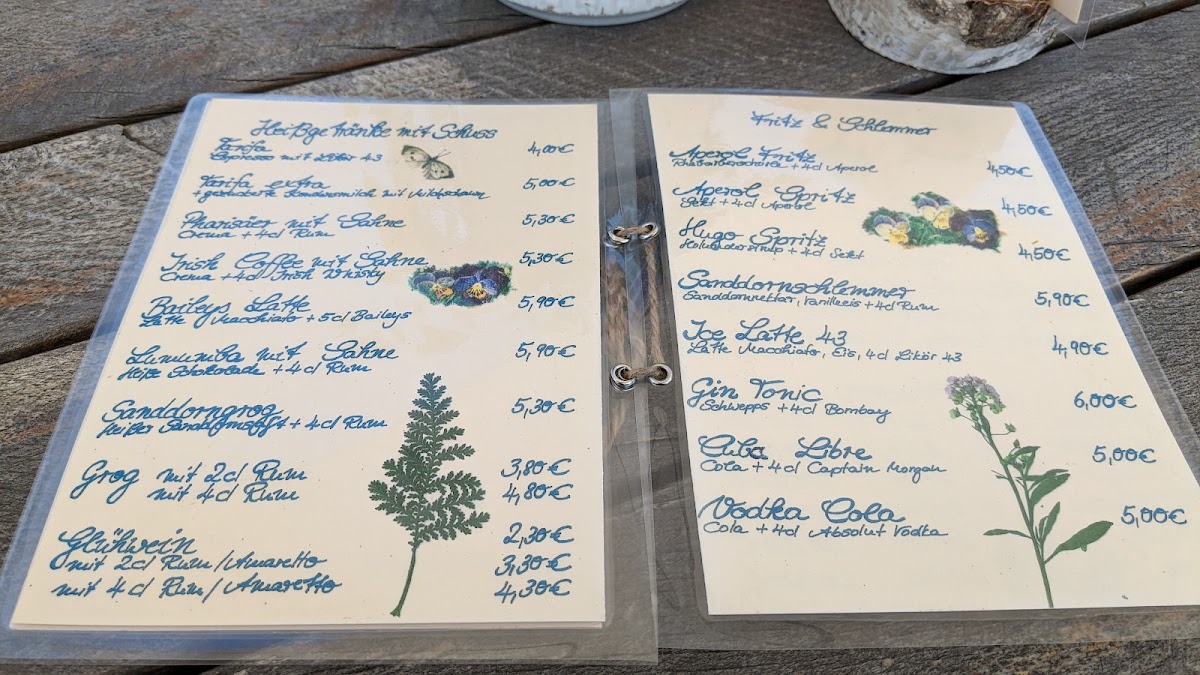 Heißgetränke mit Schuss
Tarifa 4,00€
Espresso mit Likör 43
Tarifa extra 5,00€
+ gezuckerte Kondensmilch mit Milchschaum
Pharisäer mit Sahne 5,30€
Crema + 4cl Rum
Irish Coffee mit Sahne 5,30€
Crema + 4cl Irish Whisky
Baileys Latte 5,90€
Latte Macchiato + 5cl Baileys
Lumumba mit Sahne 5,90€
Heiße Schokolade + 4cl Rum
Sanddorngrog 5,30€
Heißer Sanddornsaft + 4cl Rum
Grog mit 2cl Rum 3,80€
mit 4cl Rum 4,80€
Glühwein 2,30€
mit 2cl Rum/Amaretto 3,30€
mit 4cl Rum/Amaretto 4,30€
Fritz & Schlemmer
Aperol Fritz 4,50€
Rhabarberschorle + 4cl Aperol
Aperol Spritz 4,50€
Sekt + 4cl Aperol
Hugo Spritz 4,50€
Holundersirup + 4cl Sekt
Sanddornschlemmer 5,90€
Sanddornnektar, Vanilleeis + 4cl Rum
Ice Latte 43 4,90€
Latte Macchiato, Eis, 4cl Likör 43
Gin Tonic 6,00€
Schwepps + 4cl Bombay
Cuba Libre 5,00€
Cola + 4cl Captain Morgan
Vodka Cola 5,00€
Cola + 4cl Absolut Vodka